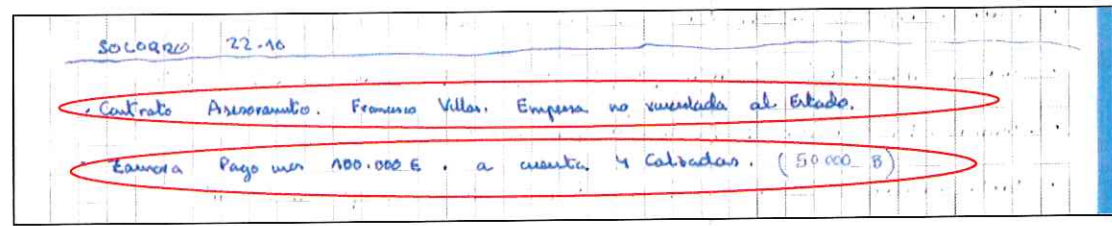 SOCORRO 22-10
- Contrato Asesoramto. Francisco Villar. Empresa no vinculada al Estado.
- Zamora Pago mes 100.000 € . a cuenta 4 Calzadas. (50 000 B)